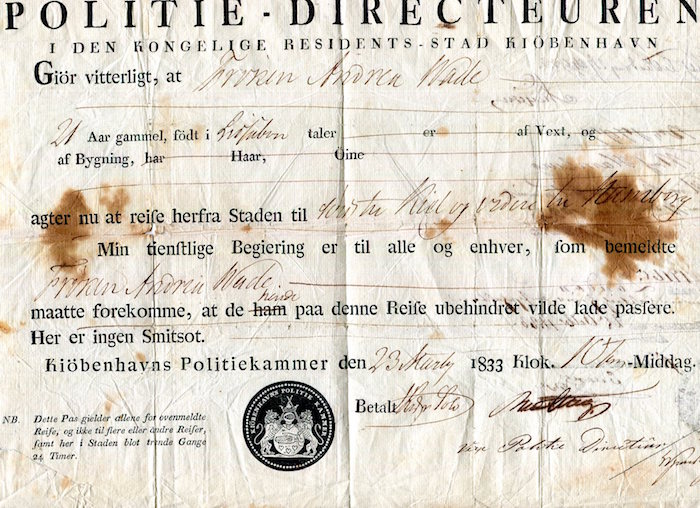 POLITIE - DIRECTEUREN
I DEN KONGELIGE RESIDENTS-STAD KIÖBENHAVN
Giör vitterligt, at Fröken Andrea Wade
21 Aar gammel, födt i Lissabon taler er af Vext, og
af Bygning, har Haar, Öine
agter nu at reiſe herfra Staden til Kiel og videre til Hamborg
Min tienſtlige Begiering er til alle og enhver, ſom bemeldte
Fröken Andrea Wade
hende
maatte forekomme, at de ham paa denne Reiſe ubehindret vilde lade paſſere.
Her er ingen Smitsot.
Kiöbenhavns Politiekammer den 23 1833 Klok. Middag.
Betalt
vice Politie Directeur
NB. Dette Pas gielder allene for ovenmeldte
Reiſe, og ikke til flere eller andre Reiſer,
ſamt her i Staden blot trende Gange
24 Timer.
KIÖBENHAVNS POLITIE KAMMER